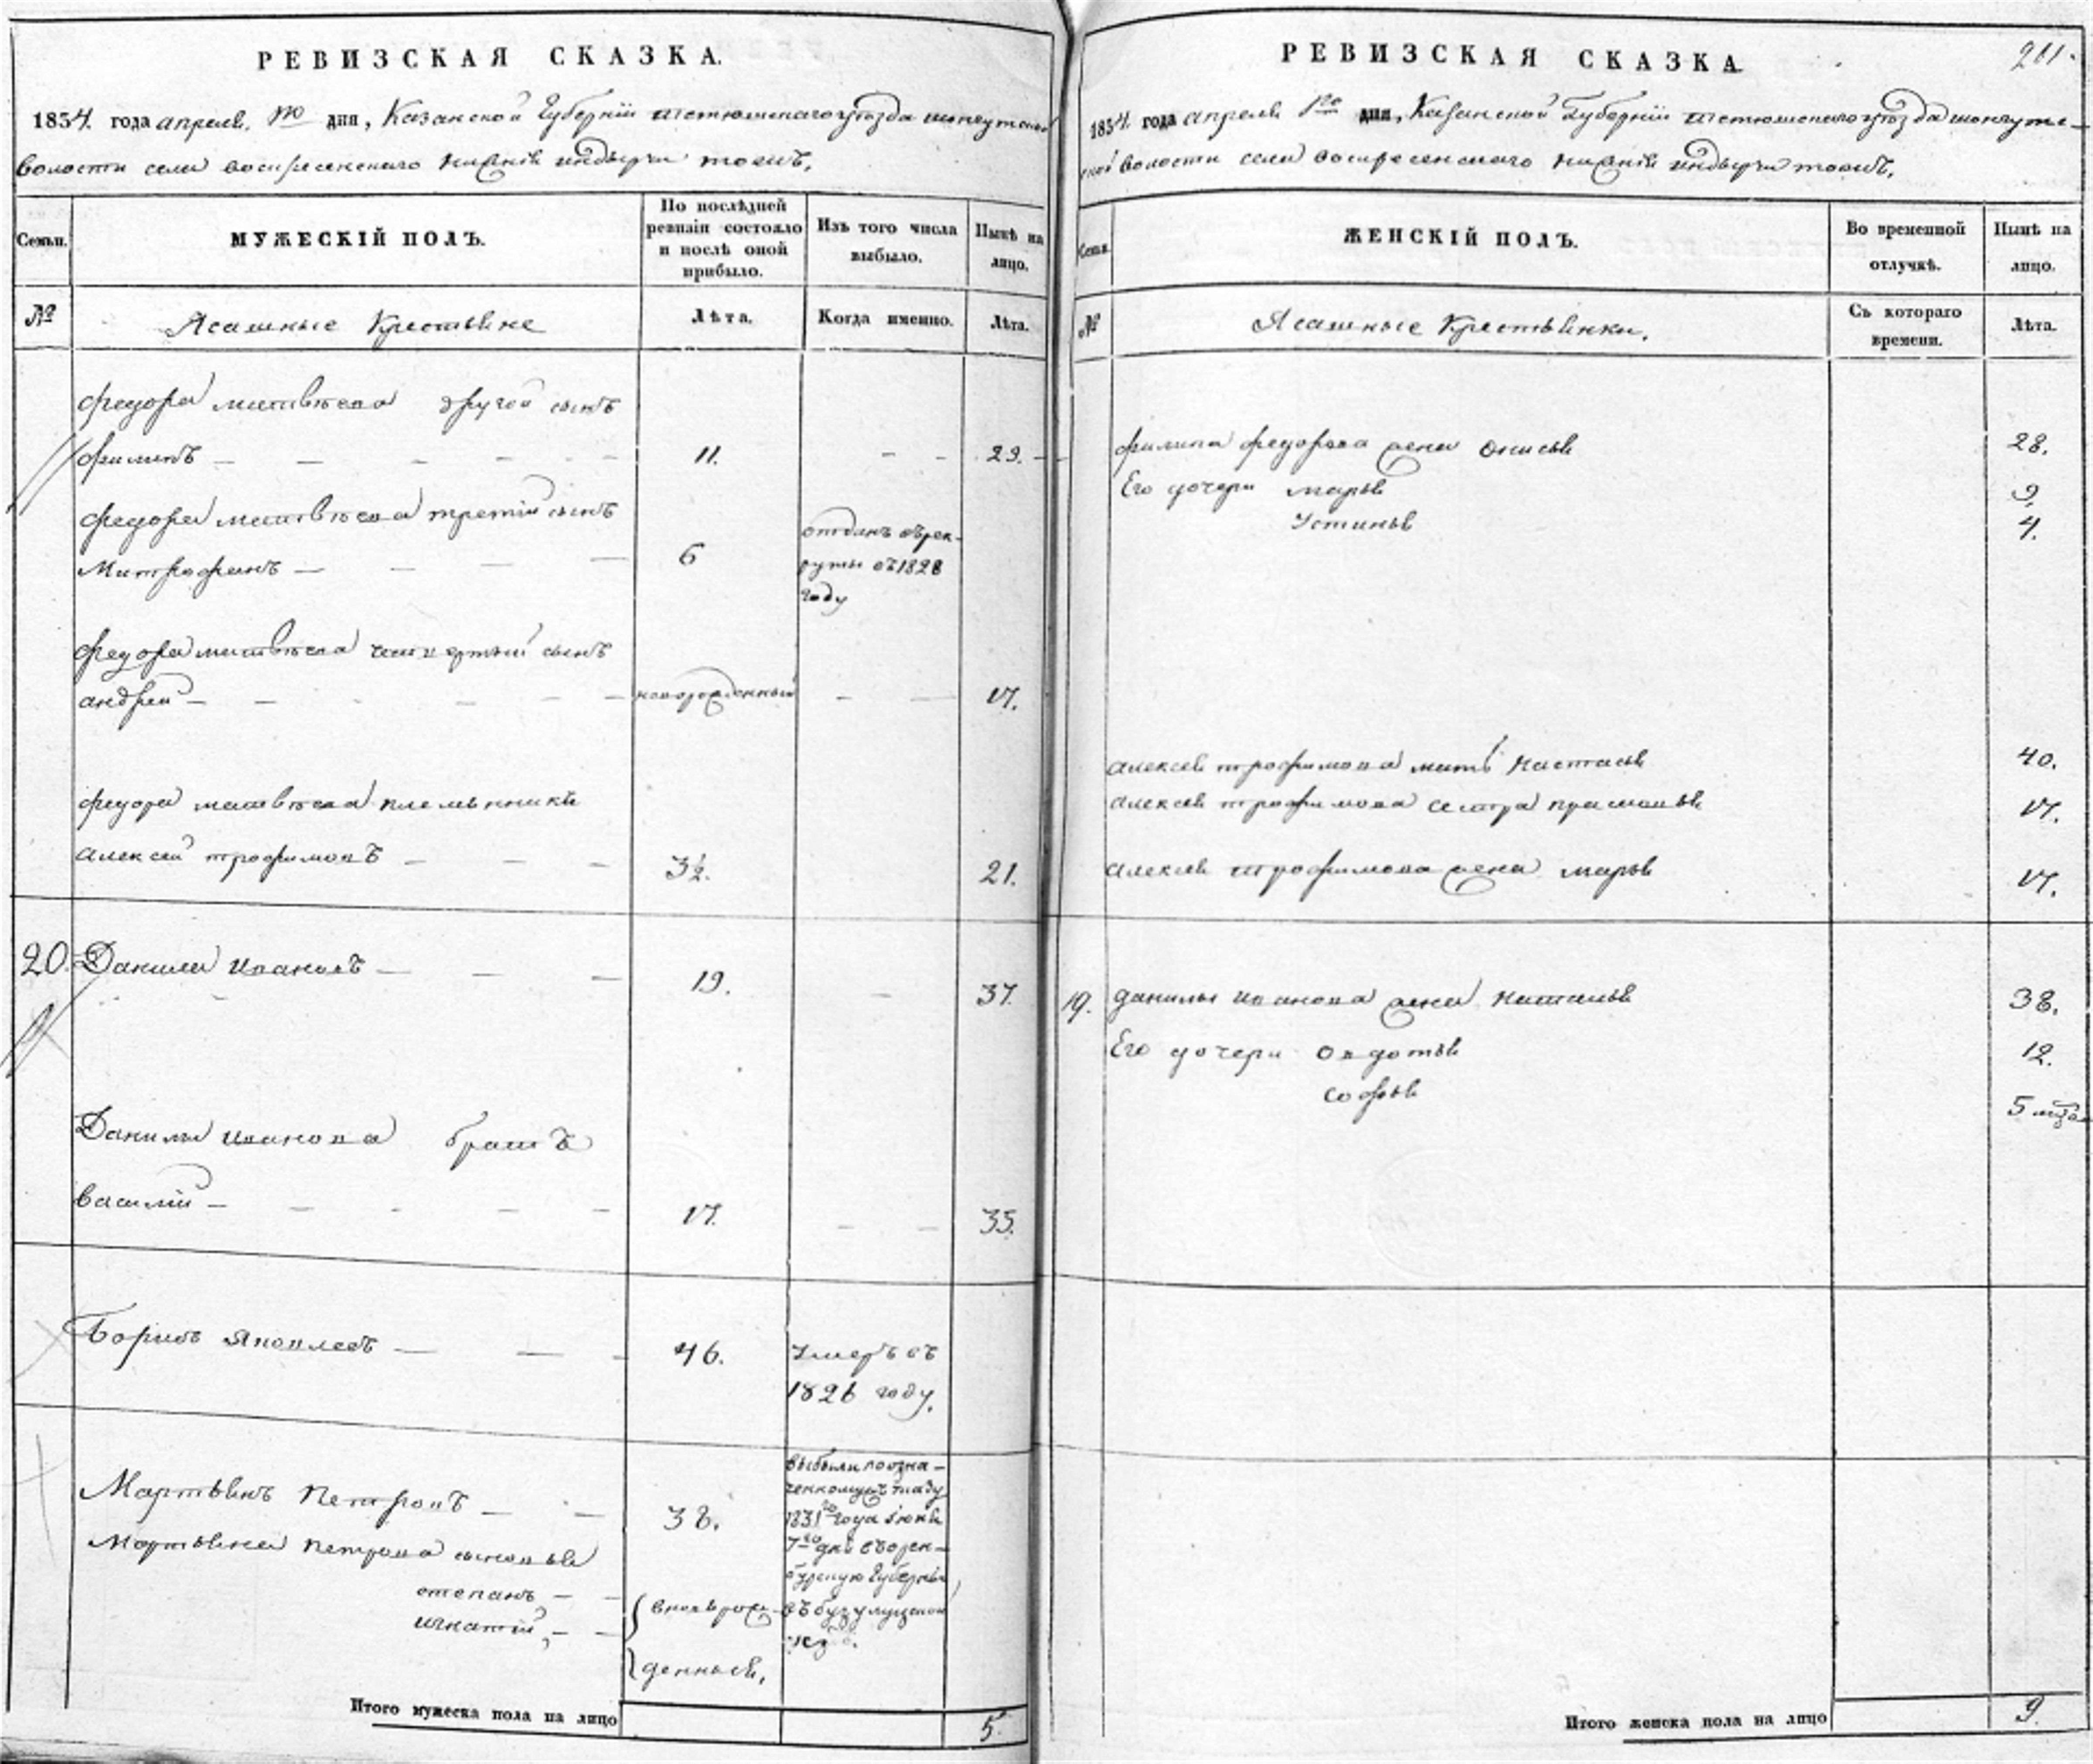 РЕВИЗСКАЯ СКАЗКА.
1834. года апреля, 1го дня, Казанской Губернии тетюшскаго уѣзда
волости села воскресенскаго индырчи тожъ,
Семьи.
МУЖЕСКІЙ ПОЛЪ.
По послѣдней ревизіи состояло и послѣ оной прибыло.
Изъ того числа выбыло.
Нынѣ на лицо.
№
Ясашные Крестьяне
Лѣта.
Когда именно.
Лѣта.
федора матвѣева другой сынъ
11. 29.
федора матвѣева третій сынъ
Митрофанъ 6
отданъ въ рек-
руты въ 1828
году
федора матвѣева четвертый сынъ
андрей новорожденный 17.
федора матвѣева племянникъ
алексей трофимовъ 3½. 21.
20. Данила Ивановъ 19. 37.
Данилы Иванова братъ
василій 17. 35.
Борисъ Яковлевъ 46.
Умеръ въ
1826 году.
Мартьянъ Петровъ 38.
Мартьяна Петрова сыновья
степанъ,
игнатій,
вновь рож-
денныя,
выбыли по озна-
ченному
1831го года Июня
7го дня въ орен-
бургскую Губернію
въ бузулуцкой
Итого мужеска пола на лицо 5
РЕВИЗСКАЯ СКАЗКА
201.
1834. года апреля 1го дня, Казанской Губернии тетюшскаго уѣзда
ной волости села воскресенскаго индырчи тожъ,
Семьи
ЖЕНСКІЙ ПОЛЪ.
Во временной отлучкѣ.
Нынѣ на лицо.
№
Ясашные Крестьянки.
Съ котораго времени.
Лѣта.
филипа федорова жена Онисья 28.
Его дочери марья 9,
Устинья 4.
алексея трофимова мать Настасья 40.
алексея трофимова сестра прасковья 17.
алексея трофимова жена марья 17.
19. данилы Иванова жена Наталья 38.
Его дочери Овдотья 12.
софья 5
Итого женска пола на лицо 9.